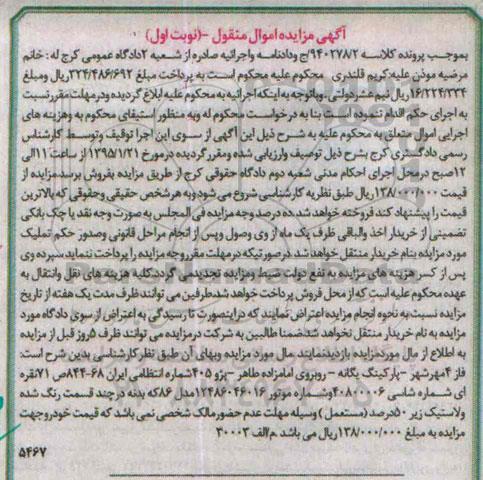 آگهی مزایده اموال منقول -(نوبت اول)
بموجب پرونده کلاسه ۹۴۰۲۷۸/۲ج ودادنامه واجرائیه صادره از شعبه ۲دادگاه عمومی کرج له : خانم
مرضیه موذن علیه:کریم قلندری محکوم علیه محکوم است به پرداخت مبلغ ۳۲۴/۴۸۶/۶۹۲ریال ومبلغ
۱۶/۲۲۴/۳۳۴ریال نیم عشردولتی.وباتوجه به اینکه اجرائیه به محکوم علیه ابلاغ گردیده ودرمهلت مقرر نسبت
به اجرای حکم اقدام ننموده است بنا به درخواست محکوم له وبه منظور استیفای محکوم به وهزینه های
اجرایی اموال متعلق به محکوم علیه به شرح ذیل این آگهی از سوی این اجرا توقیف وتوسط کارشناس
رسمی دادگستری کرج بشرح ذیل توصیف وارزیابی شده ومقرر گردیده درمورخ ۱۳۹۵/۱/۲۱ از ساعت ۱۱الی
۱۲صبح درمحل اجرای احکام مدنی شعبه دوم دادگاه حقوقی کرج از طریق مزایده بفروش برسد.مزایده از
قیمت ۱۳۸/۰۰۰/۰۰۰ریال طبق نظریه کارشناسی شروع می شود وبه هر شخص حقیقی وحقوقی که بالاترین
قیمت را پیشنهاد کند فروخته خواهد شد.ده درصد وجه مزایده فی المجلس به صورت وجه نقد یا چک بانکی
تضمینی از خریدار اخذ والباقی ظرف یک ماه از وی وصول وپس از انجام مراحل قانونی وصدور حکم تملیک
مورد مزایده بنام خریدار منتقل خواهد شد.در صورتیکه در مهلت مقرر وجه مزایده را پرداخت ننماید سپرده وی
پس از کسر هزینه های مزایده به نفع دولت ضبط ومزایده تجدید می گردد.کلیه هزینه های نقل وانتقال به
عهده محکوم علیه است که از محل فروش پرداخت خواهد شد.طرفین می توانند ظرف مدت یک هفته از تاریخ
مزایده نسبت به نحوه انجام مزایده اعتراض نمایند که دراینصورت تا رسیدگی به اعتراض از سوی دادگاه مورد
مزایده به نام خریدار منتقل نخواهد شد.ضمنا طالبین به شرکت درمزایده می توانند ظرف ۵روز قبل از مزایده
به اطلاع از مال مورد مزایده بازدید نمایند. مال مورد مزایده وبهای آن طبق نظر کارشناسی بدین شرح است:
فاز ۴مهرشهر -پارکینگ یگانه - روبروی امامزاده طاهر -پژو ۴۰۵شماره انتظامی ایران ۶۸-۸۴۴ص ۷۱نقره
ای شماره شاسی ۴۰۸۰۰۶وشماره موتور ۱۲۴۸۶۰۴۶۰۱۶مدل ۸۶که بدنه درچند قسمت رنگ شده
ولاستیک زیر ۵۰درصد (مستعمل ) وسیله مهلت عدم حضور مالک شخصی نمی باشد که قیمت خودرو جهت
مزایده به مبلغ ۱۳۸/۰۰۰/۰۰۰ریال می باشد .م/الف ۳۰۰۰۳
۵۴۶۷